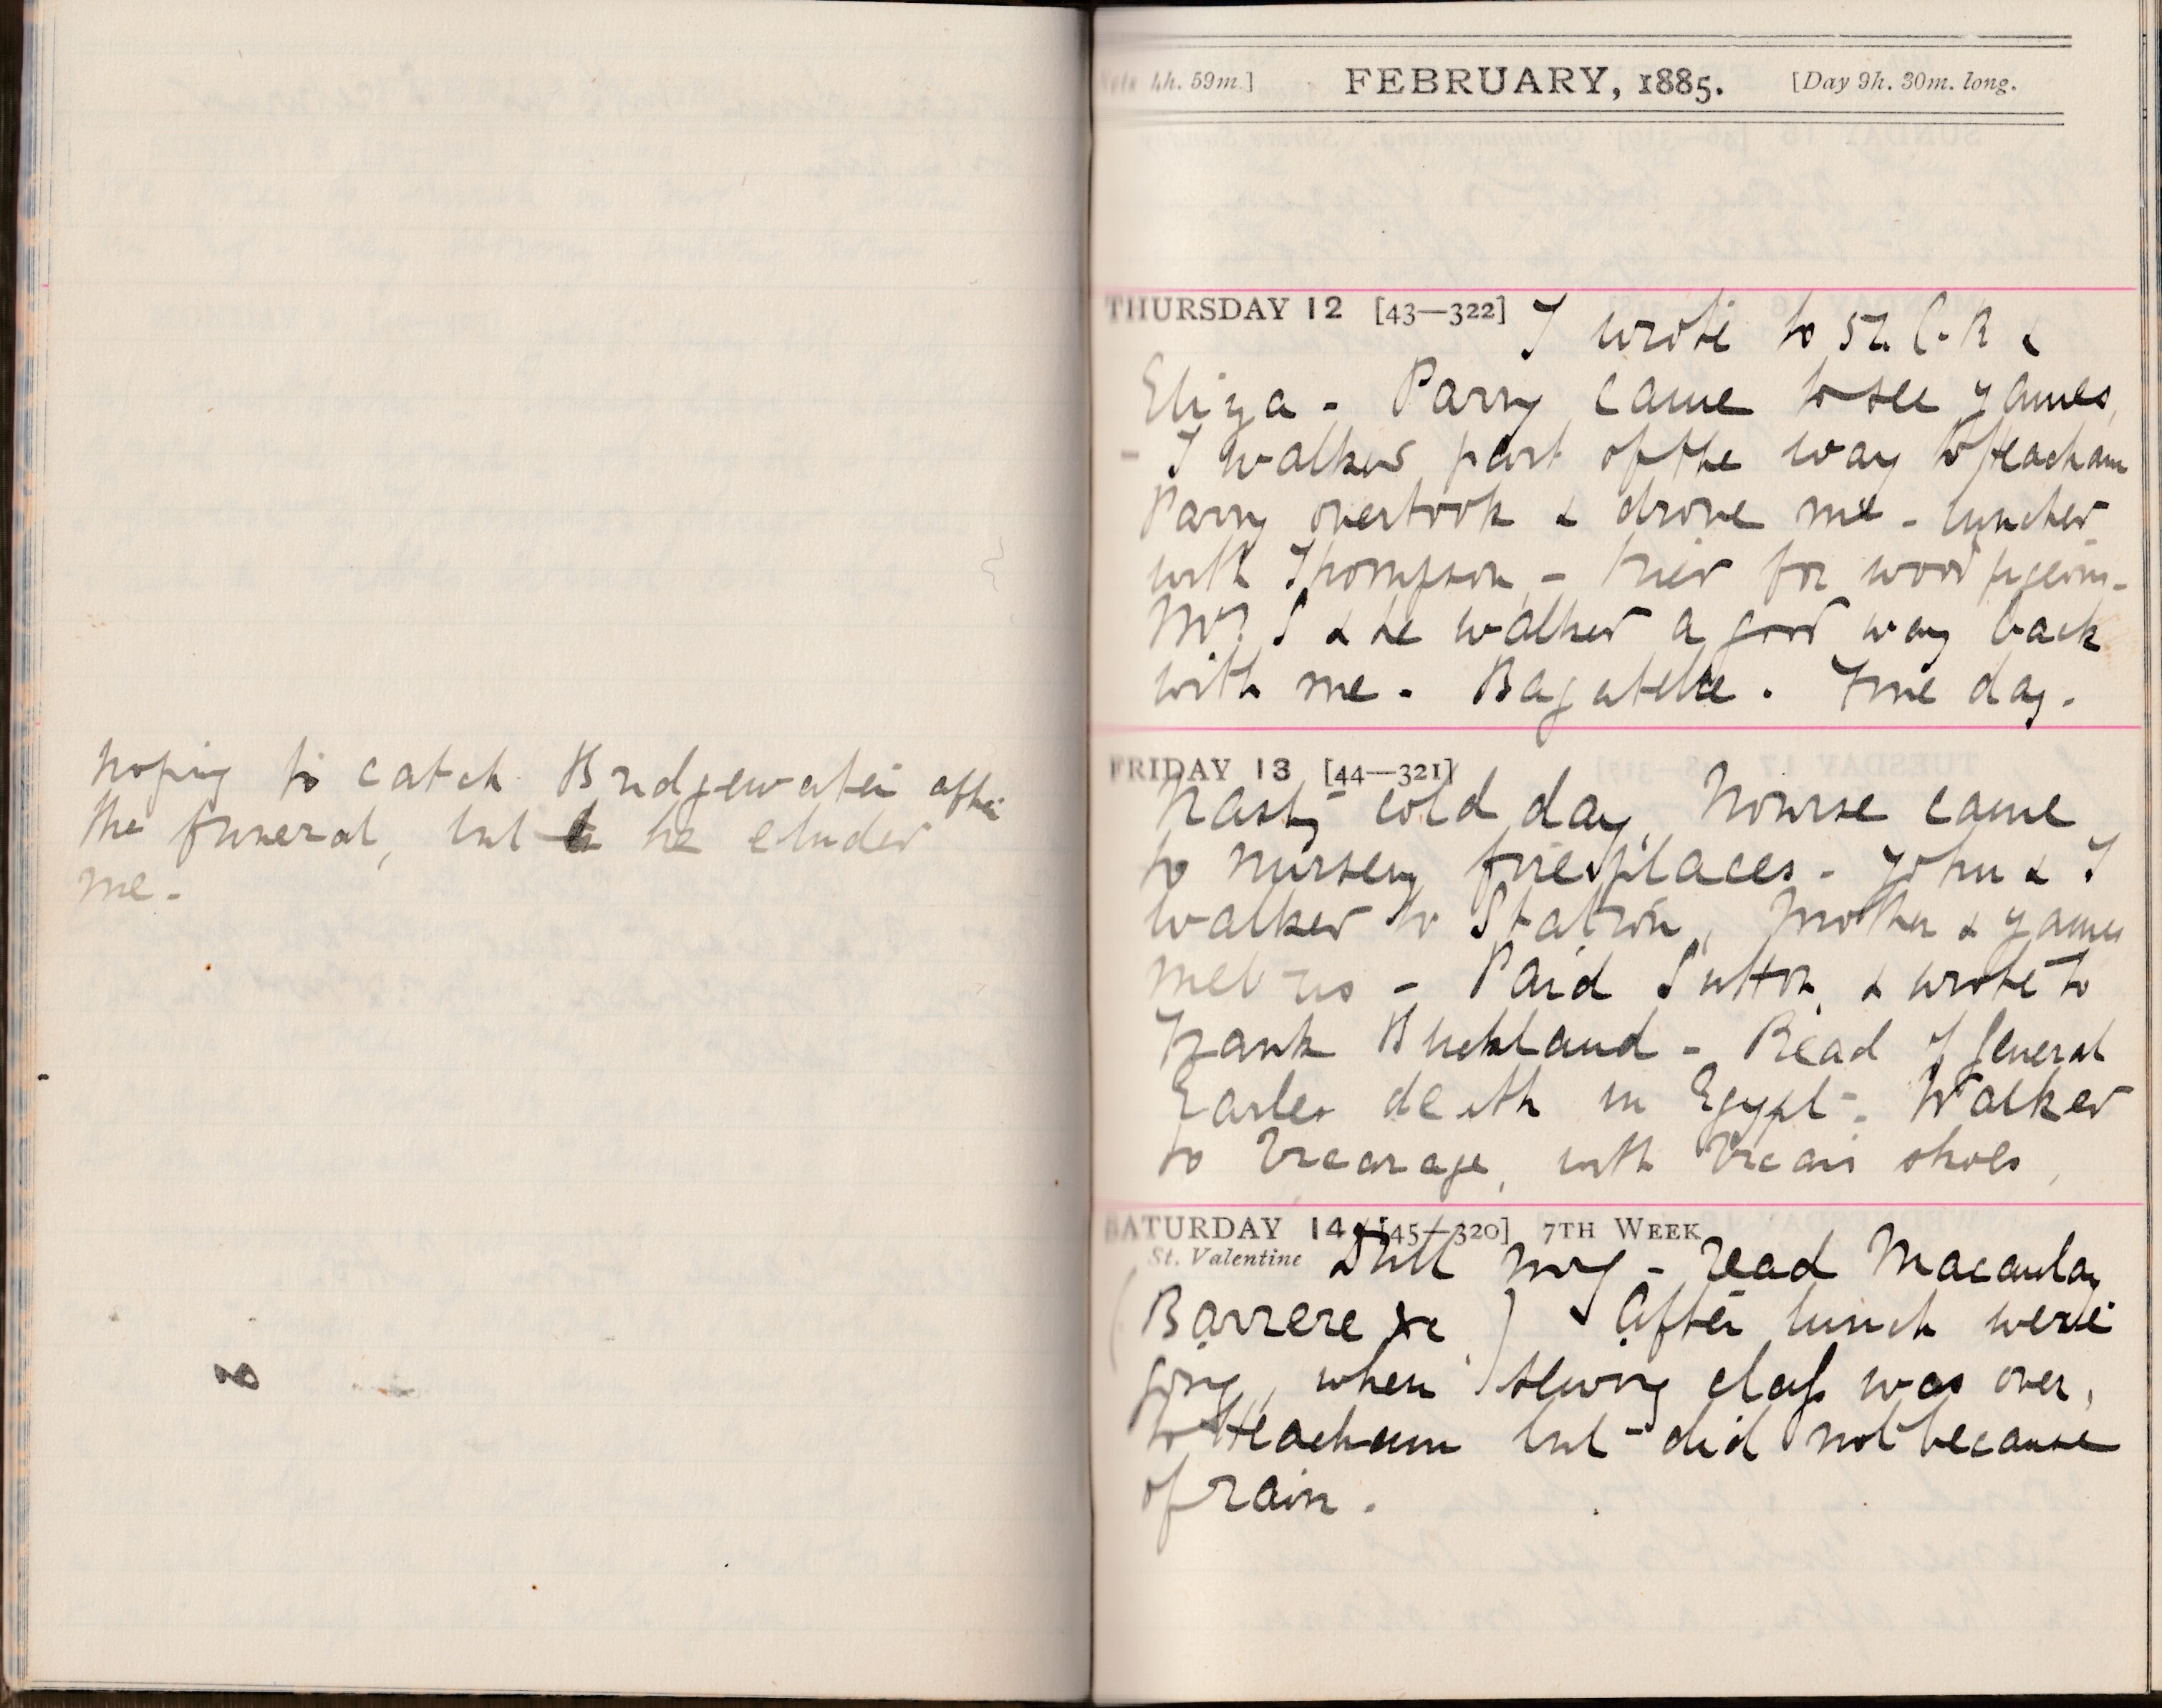 hoping to catch Bridgewater after
the funeral, but he eluded
me -
4h. 59m.] FEBRUARY, 1885. [Day 9h. 30m. long.
THURSDAY 12 [43—322] I wrote to C. R &
Eliza - Parry came to see James,
- I walked part of the way to Heacham
Parry overtook & drove me - lunched
with Thompson - tried for wood pigeons -
& he walked a good way back
with me - Bagatelle. Fine day.
FRIDAY 13 [44—321]
Nasty cold day. Nourse came
to nursery fireplaces - John & I
walked to Station, Mother & James
met us - Paid Sutton & wrote to
Frank Buckland - Read of General
Earles death in Egypt - Walked
to Vicarage, with Vicars shoes,
SATURDAY 14 [45—320] 7TH WEEK
St. Valentine Dull mng - read Macaulay
(Barrere &c) After lunch were
going, when sewing class was over,
to Heacham but did not because
of rain.